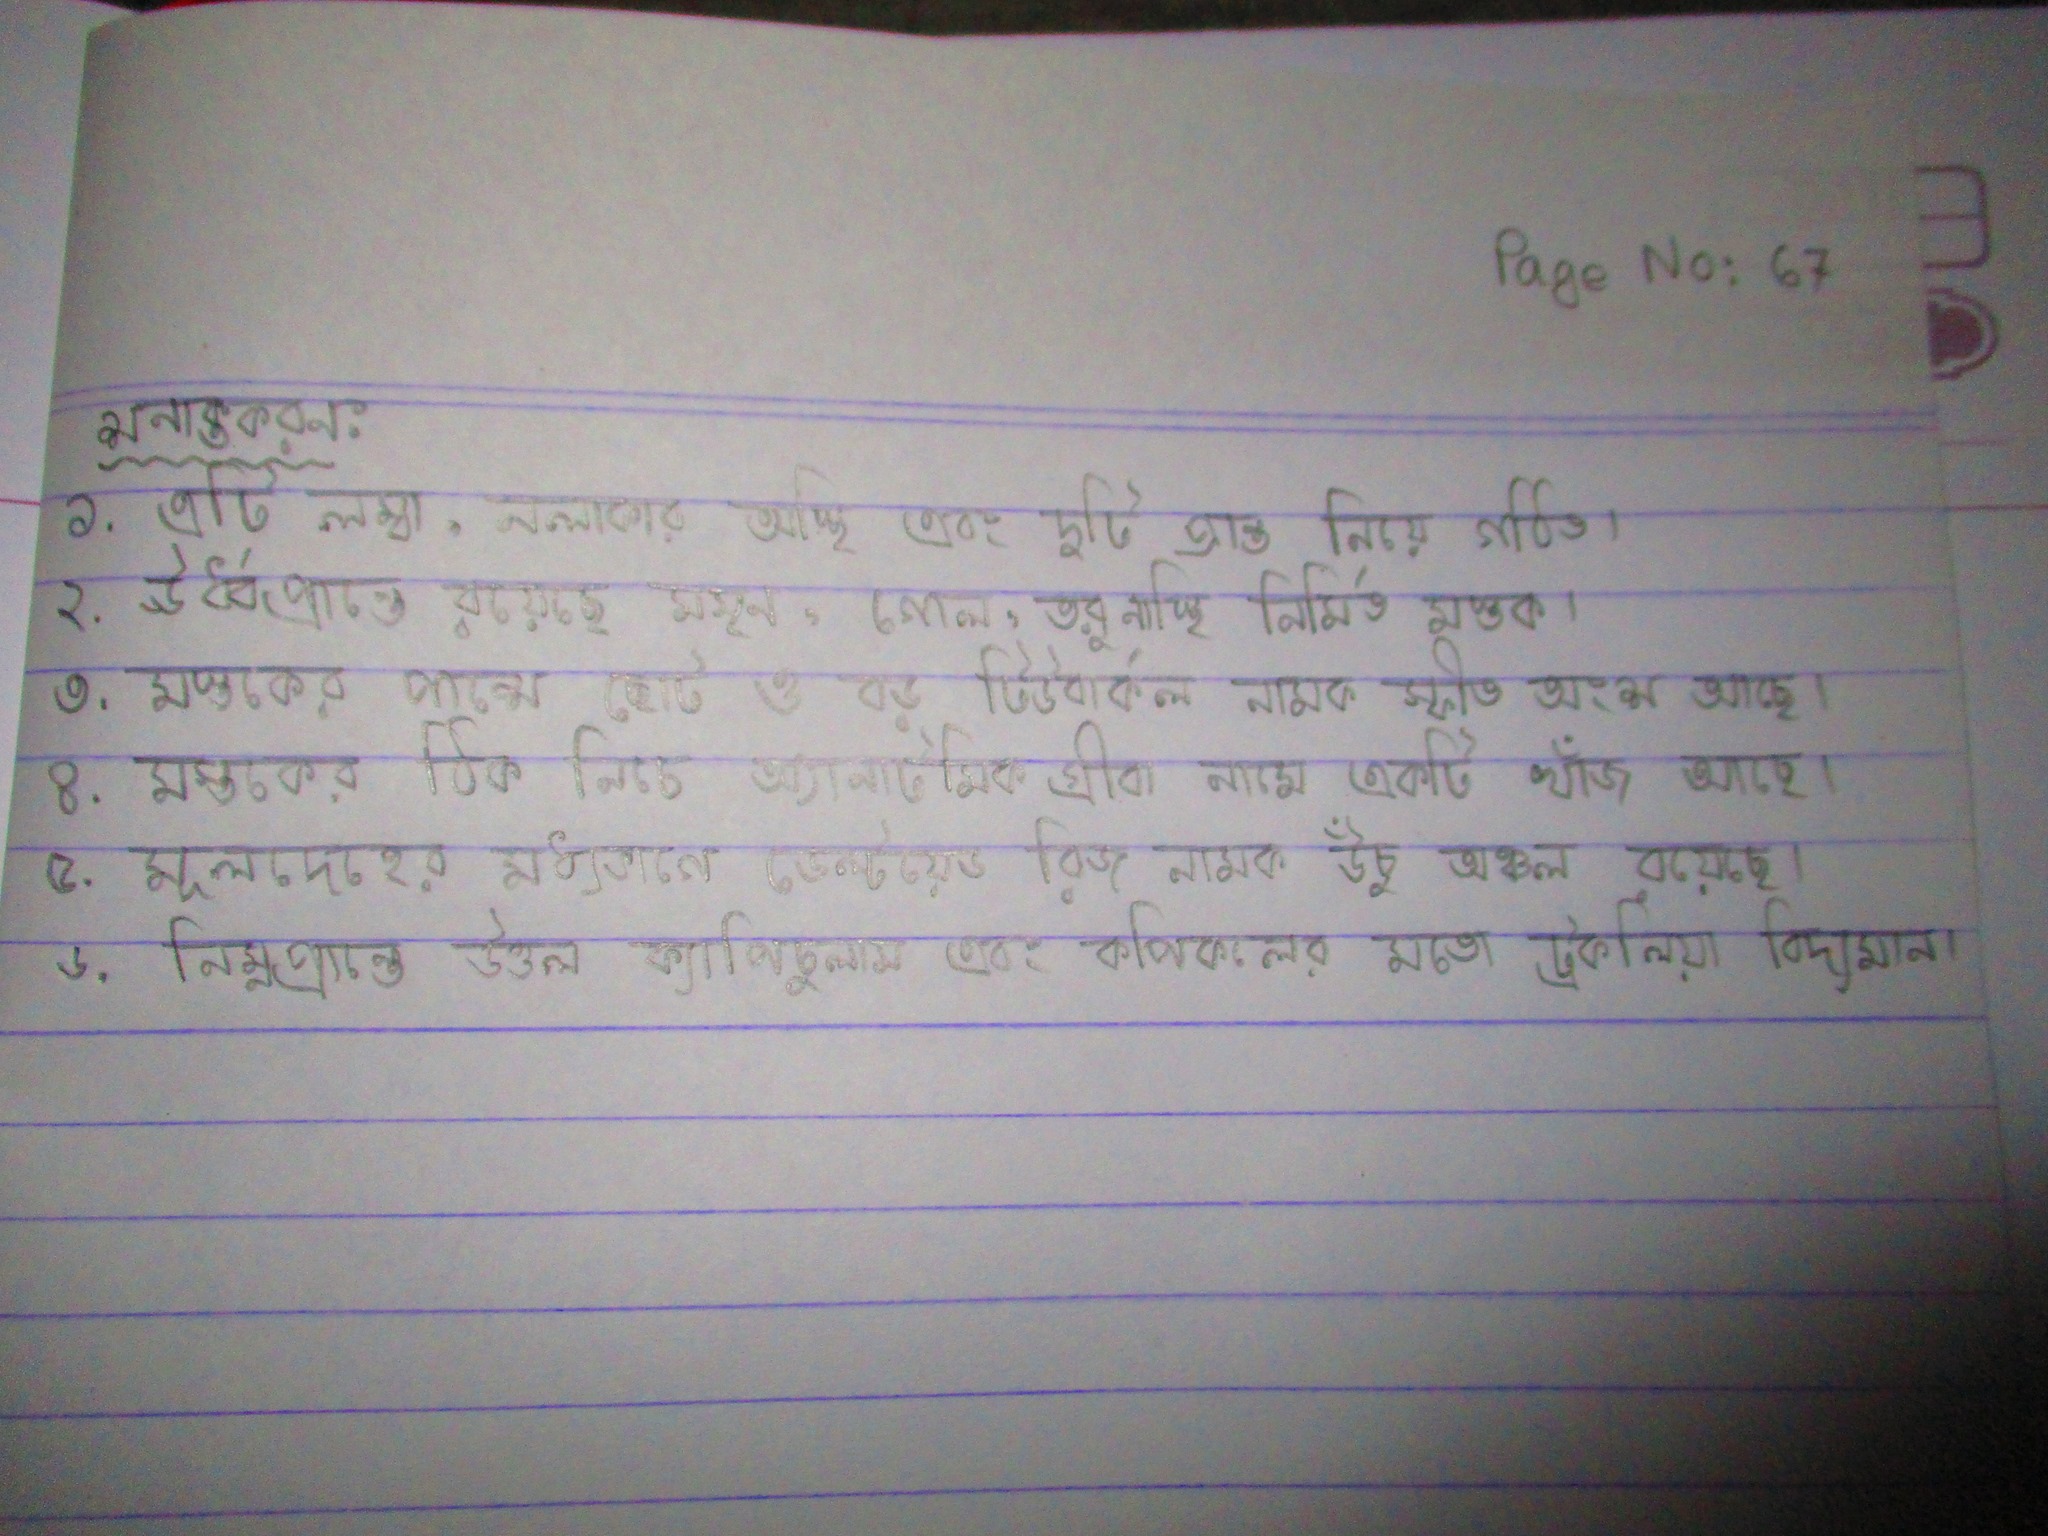 Page No: 67
শনাক্তকরন:
১. এটি লম্বা, নলাকার অস্থি এবং দুটি প্রান্ত নিয়ে গঠিত।
২. উর্ধ্বপ্রান্তে রয়েছে মসৃন, গোল, তরুনাস্থি নির্মিত মস্তক।
৩. মস্তকের পাশে ছোট ও বড় টিউবার্কল নামক স্ফীত অংশ আছে।
৪. মস্তকের ঠিক নিচে অ্যানাটমিক গ্রীবা নামে একটি খাঁজ আছে।
৫. মূলদেহের মধ্যভাগে ডেল্টয়েড রিজ নামক উঁচু অঞ্চল রয়েছে।
৬. নিম্নপ্রান্তে উত্তল ক্যাপিচুলাম এবং কপিকলের মতো ট্রকলিয়া বিদ্যমান।